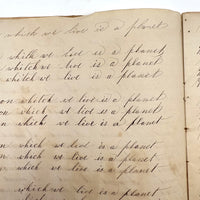 which we live is a planet
which we live is a planet
which we live is a planet
which we live is a planet
on which we live is a planet
on which we live is a planet
on which we live is a planet
on which we live is a planet
on which we live is a planet
on which we live is a planet
which we live is a planet
which we live is a planet